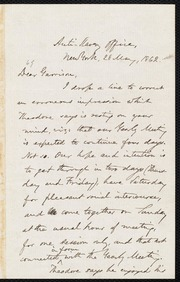 Anti-Slavery Office,
New York, 28 May, 1862.
Dear Garrison,
I drop a line to correct
an erroneous impression which
Theodore says is resting on your
mind, viz: that our Yearly Meeting
is expected to continue four days.
Not so. Our hope and intention is
to get through in two days (Thurs-
day and Friday), have Saturday
for pleasant social interviews,
and come together on Sunday
at the usual hour of meeting,
for one session only, and that not
in form
connected with the Yearly Meeting.
Theodore says he enjoyed his